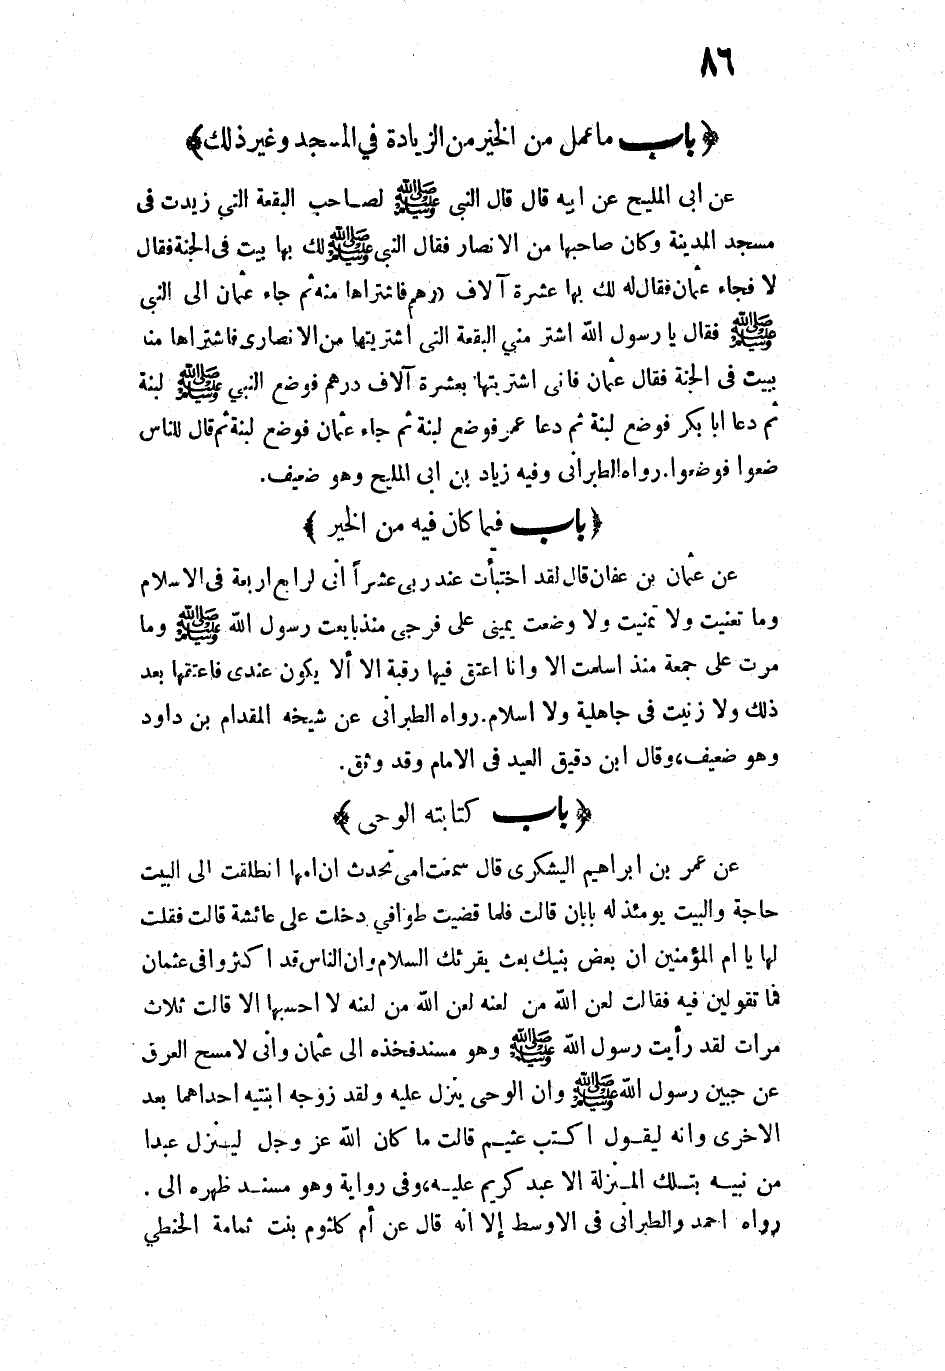 ٨٦
﴿باب ما عمل من الخير من الزيادة في المسجد وغير ذلك﴾
عن ابى المليح عن ابيه قال قال النبى ﷺ لصاحب البقعة التي زيدت فى
مسجد المدينة وكان صاحبها من الانصار فقال النبىﷺ لك بها بيت فى الجنة فقال
لا فجاء عثمان فقال له لك بها عشرة آلاف درهم فاشتراها منه ثم جاء عثمان الى النبى
ﷺ فقال يا رسول الله اشتر مني البقعة التى اشتريتها من الانصارى فاشتراها منه
ببيت فى الجنة فقال عثمان فانى اشتريتها بعشرة آلاف درهم فوضع النبي ﷺ لبنة
ثم دعا ابا بكر فوضع لبنة ثم دعا عمر فوضع لبنة ثم جاء عثمان فوضع لبنة ثم قال للناس
ضعوا فوضعوا. رواه الطبرانى وفيه زياد بن ابى المليح وهو ضعيف.
﴿باب فيما كان فيه من الخير﴾
عن عثمان بن عفان قال لقد اختبأت عند ربى عشراً انى لرابع اربعة فى الاسلام
وما تعنيت ولا تمنيت ولا وضعت يمينى على فرجى منذ بايعت رسول الله ﷺ وما
مرت على جمعة منذ اسلمت الا وانا اعتق فيها رقبة الا ألا يكون عندى فاعتقها بعد
ذلك ولا زنيت فى جاهلية ولا اسلام. رواه الطبرانى عن شيخه المقدام بن داود
وهو ضعيف، وقال ابن دقيق العيد فى الامام وقد وثق.
﴿باب كتابته الوحى﴾
عن عمر بن ابراهيم اليشكرى قال سمعت امى تحدث ان امها انطلقت الى البيت
حاجة والبيت يومئذ له بابان قالت فلما قضيت طوافي دخلت على عائشة قالت فقلت
لها يا ام المؤمنين ان بعض بنيك بعث يقرئك السلام وان الناس قد اكثروا فى عثمان
فما تقولين فيه فقالت لعن الله من لعنه لعن الله من لعنه لا احسبها الا قالت ثلاث
مرات لقد رأيت رسول الله ﷺ وهو مسند فخذه الى عثمان وانى لامسح العرق
عن جبين رسول الله ﷺ وان الوحى ينزل عليه ولقد زوجه ابنتيه احداهما بعد
الاخرى وانه ليقول اكتب عثيم قالت ما كان الله عز وجل لينزل عبدا
من نبيه بتلك المنزلة الا عبد كريم عليه، وفى رواية وهو مسند ظهره الى .
رواه احمد والطبرانى فى الاوسط إلا انه قال عن أم كلثوم بنت ثمامة الحنطي